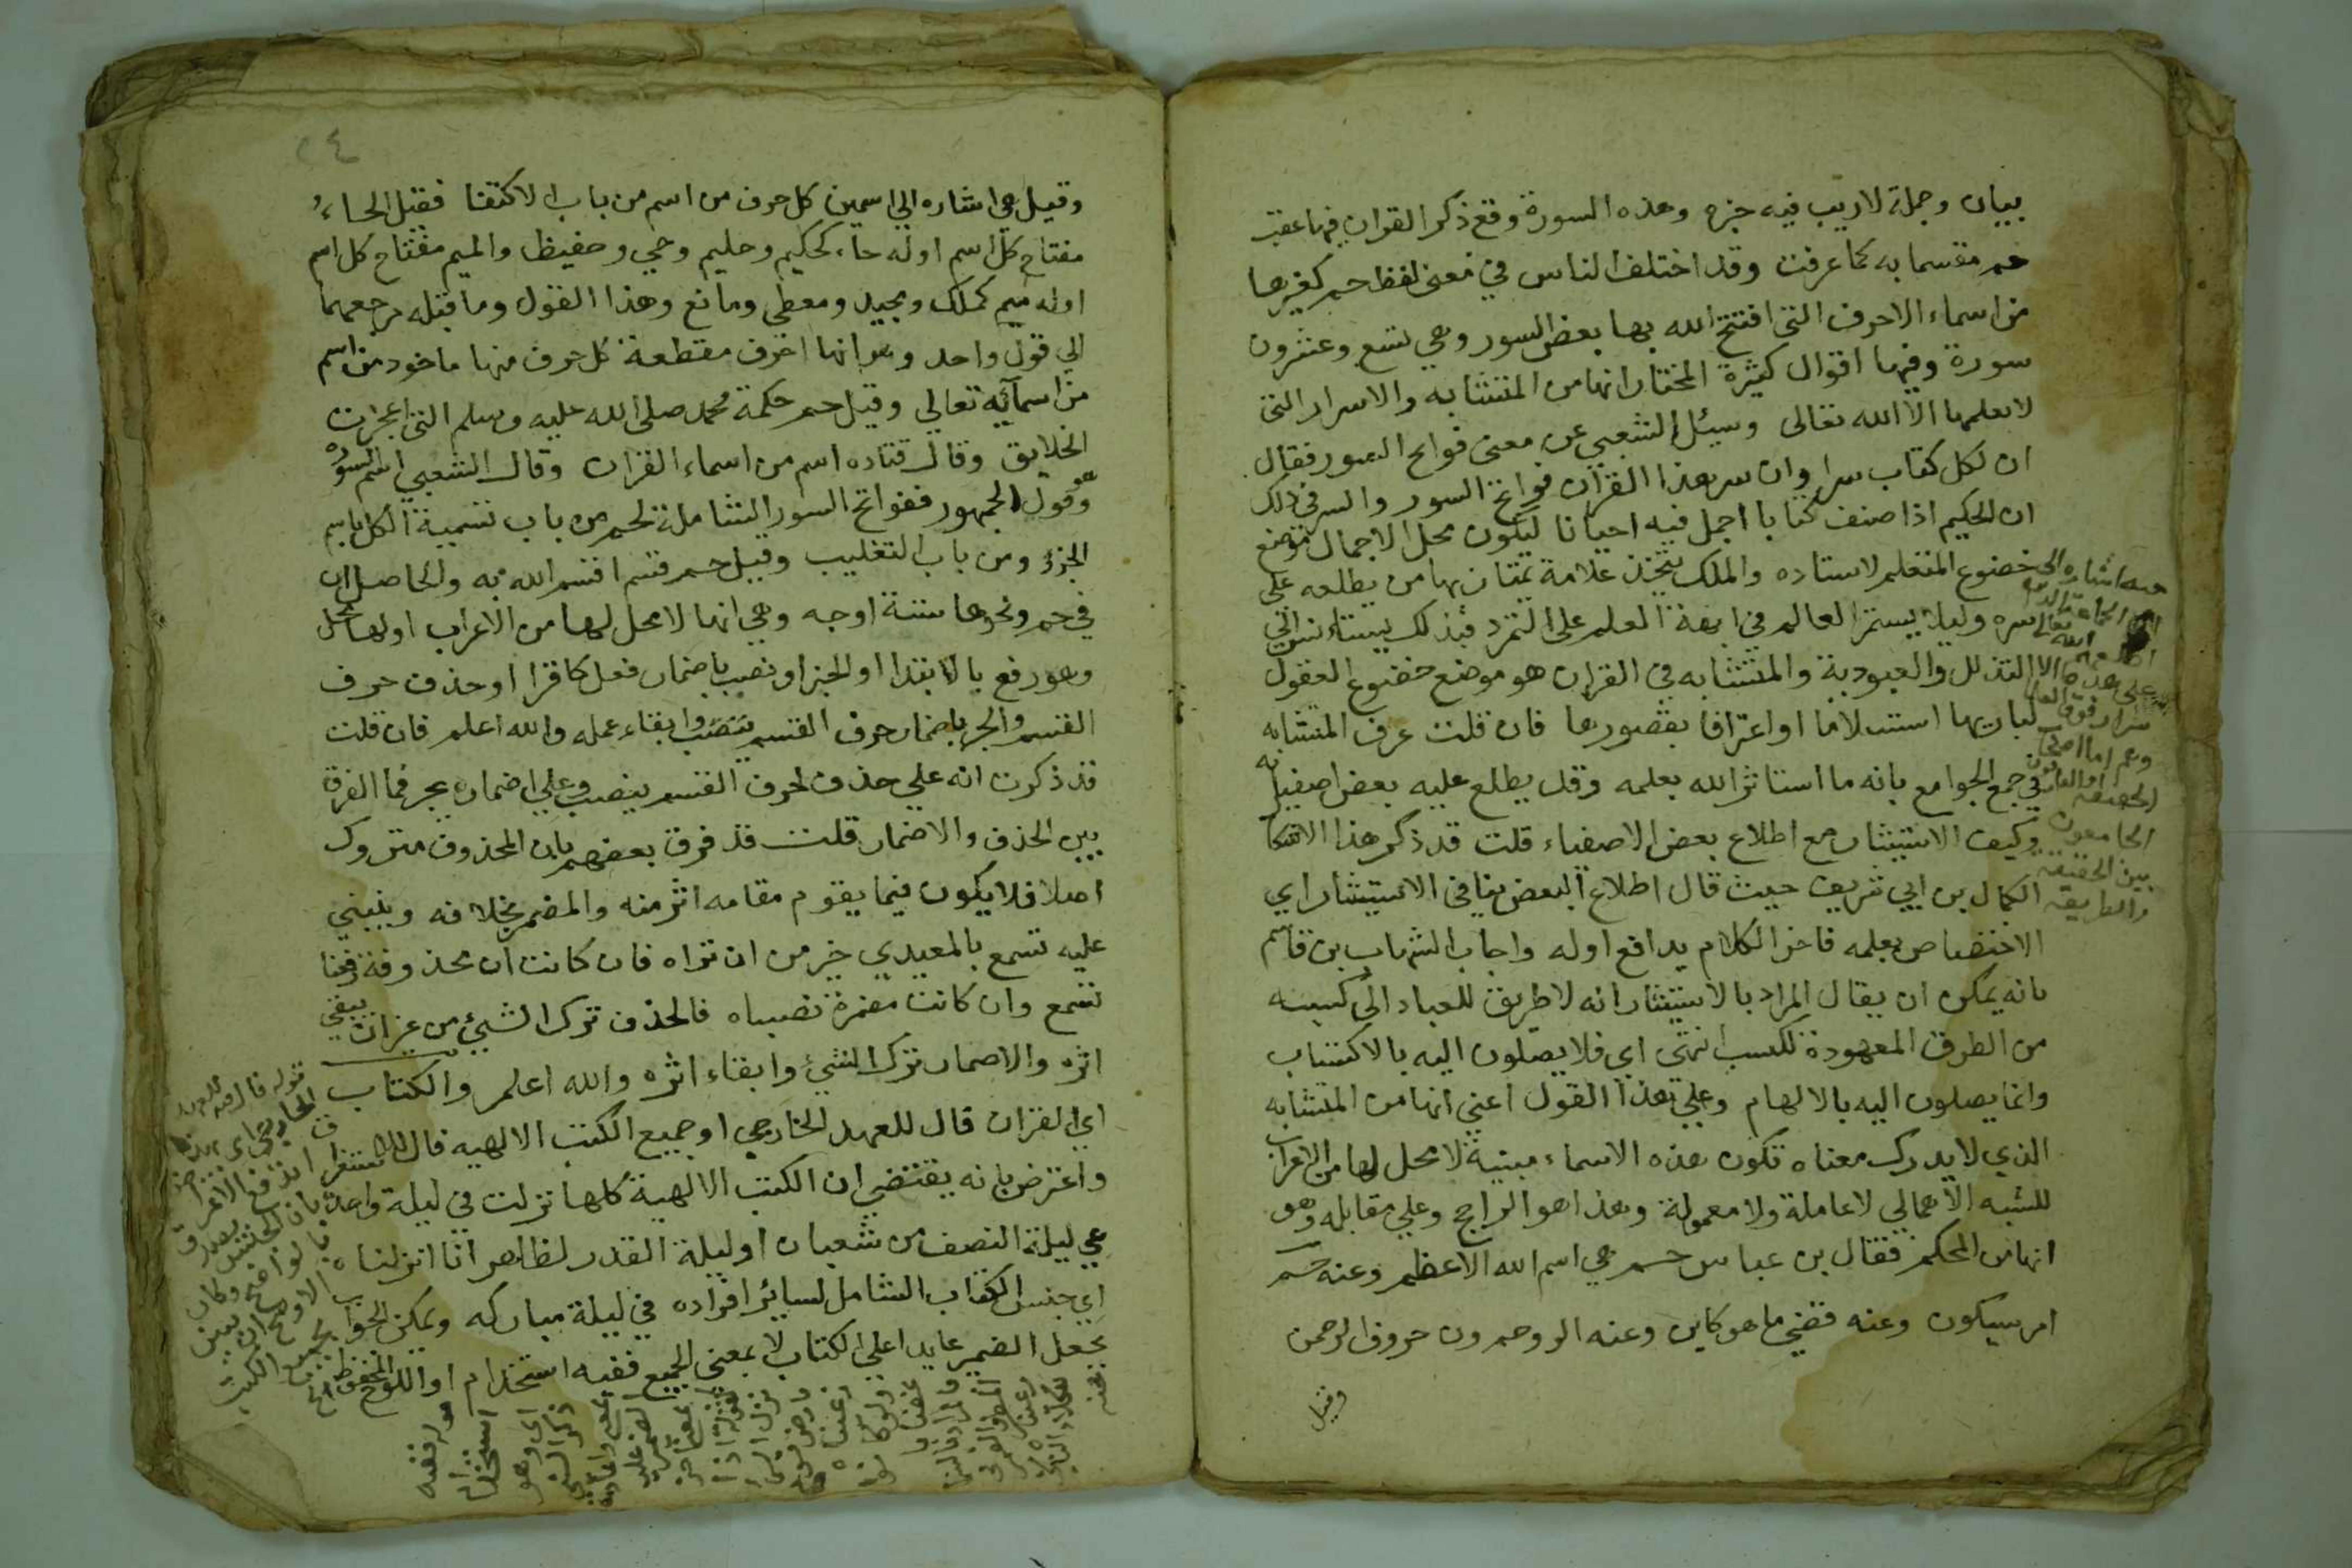 بيان وجملة لاريب فيه جزه وهذه السورة وقع ذكر القران فيها عقب
حم مقسما به كما عرفت وقد اختلف الناس في معنى لفظ حم كغيرها
من اسماء الاحرف التى افتتح الله بها بعض السور وهي تسع وعشرون
سورة وفيها اقوال كثيرة المختار انها من المتشابه والاسرار التى
لا يعلمها الا الله تعالى وسيئل الشعبي عن معنى فواتح السور فقال
ان لكل كتاب سرا وان سر هذا القران فواتح السور والسر في ذلك
ان الحكيم اذا صنف كتابا اجمل فيه احيانا ليكون محل الاجمال موضع
خضوع المتعلم لاستاده والملك يتخذ علامة يمتاز بها من يطلعه على
سره وليلا يستمر العالم في ابهة العلم على التمرد فبذلك يستانس الي
التذلل والعبودية والمتشابه في القران هو موضع خضوع العقول
لباريها استسلاما او اعترافا بقصورها فان قلت عرف المتشابه
في جمع الجوامع بانه ما استاثر الله بعلمه وقد يطلع عليه بعض اصفيايه
وكيف الاستيثار مع اطلاع بعض الاصفياء قلت قد ذكر هذا الاشكال
الكمال بن ابي شريف حيث قال اطلاع البعض ينافي الاستيثار اي
الاختصاص بعلمه فاخر الكلام يدافع اوله واجاب الشهاب بن قاسم
بانه يمكن ان يقال المراد بالاستيثار انه لا طريق للعباد الى كسبه
من الطرق المعهودة للكسب انتهى اي فلا يصلون اليه بالاكتساب
وانما يصلون اليه بالالهام وعلي هذا القول اعني انها من المتشابه
الذي لا يدرك معناه تكون هذه الاسماء مبنية لا محل لها من الاعراب
للشبه الاهمالي لا عاملة ولا معمولة وهذا هو الراجح وعلي مقابله وهو
انها من المحكم فقال بن عباس حم هي اسم الله الاعظم وعنه حم
امر سيكون وعنه قضي ما هو كاين وعنه الر وحم ون حروف الرحمن
وقيل
الحقيقة
الجامعون
بين الحقيقة
والطريقة
٢٤
وقيل هي اشاره الي اسمين كل حرف من اسم من باب الاكتفا فقيل الحاء
مفتاح كل اسم اوله حاء كحكيم وحليم وحي وحفيظ والميم مفتاح كل اسم
اوله ميم كملك ومجيد ومعطي ومانع وهذا القول وما قبله مرجعهما
الي قول واحد وهو انها احرف مقطعة كل حرف منها ماخود من اسم
من اسمآئه تعالي وقيل حم حكمة محمد صلى الله عليه وسلم التى اعجزت
الخلايق وقال قتاده اسم من اسماء القران وقال الشعبي اسم السوره
وهو قول الجمهور ففواتح السور الشاملة لحم من باب تسمية الكل باسم
الجزؤ ومن باب التغليب وقيل حم قسم اقسم الله به والحاصل ان
في حم ونحوها ستة اوجه وهي انها لا محل لها من الاعراب اولها محل
وهو رفع بالابتدا او الخبر او نصب باضمار فعل كاقرا او حذف حرف
القسم والجر باضمار حرف القسم وابقاء عمله والله اعلم فان قلت
قد ذكرت انه على حذف لحرف القسم ينصب وعلي اضماره يجر فما الفرق
بين الحذف والاضمار قلت قد فرق بعضهم بان المحذوف متروك
اصلا فلا يكون فيما يقوم مقامه اثر منه والمضمر بخلافه وينبني
عليه تسمع بالمعيدي خير من ان تراه فان كانت ان محذوفة رفعنا
تسمع وان كانت مضمرة نصبناه فالحذف ترك الشيئ من غير ان يبقي
اثره والاضمار ترك الشيئ وابقاء اثره والله اعلم والكتاب
اي القران قال للعهد الخارجي او جميع الكتب الالهيه قال للاستغراق
واعترض بانه يقتضي ان الكتب الالهية كلها نزلت في ليلة واحدة
هي ليلة النصف من شعبان او ليلة القدر لظاهر انا انزلناه
اي جنس الكتاب الشامل لسائر افراده في ليلة مباركه ويمكن الجواب
بجعل الضمير عايدا على الكتاب لا بمعني الجميع ففيه استخدام او اللوح المحفوظ
قوله ففيه
استخدام
اي وهو
ذكر الشي